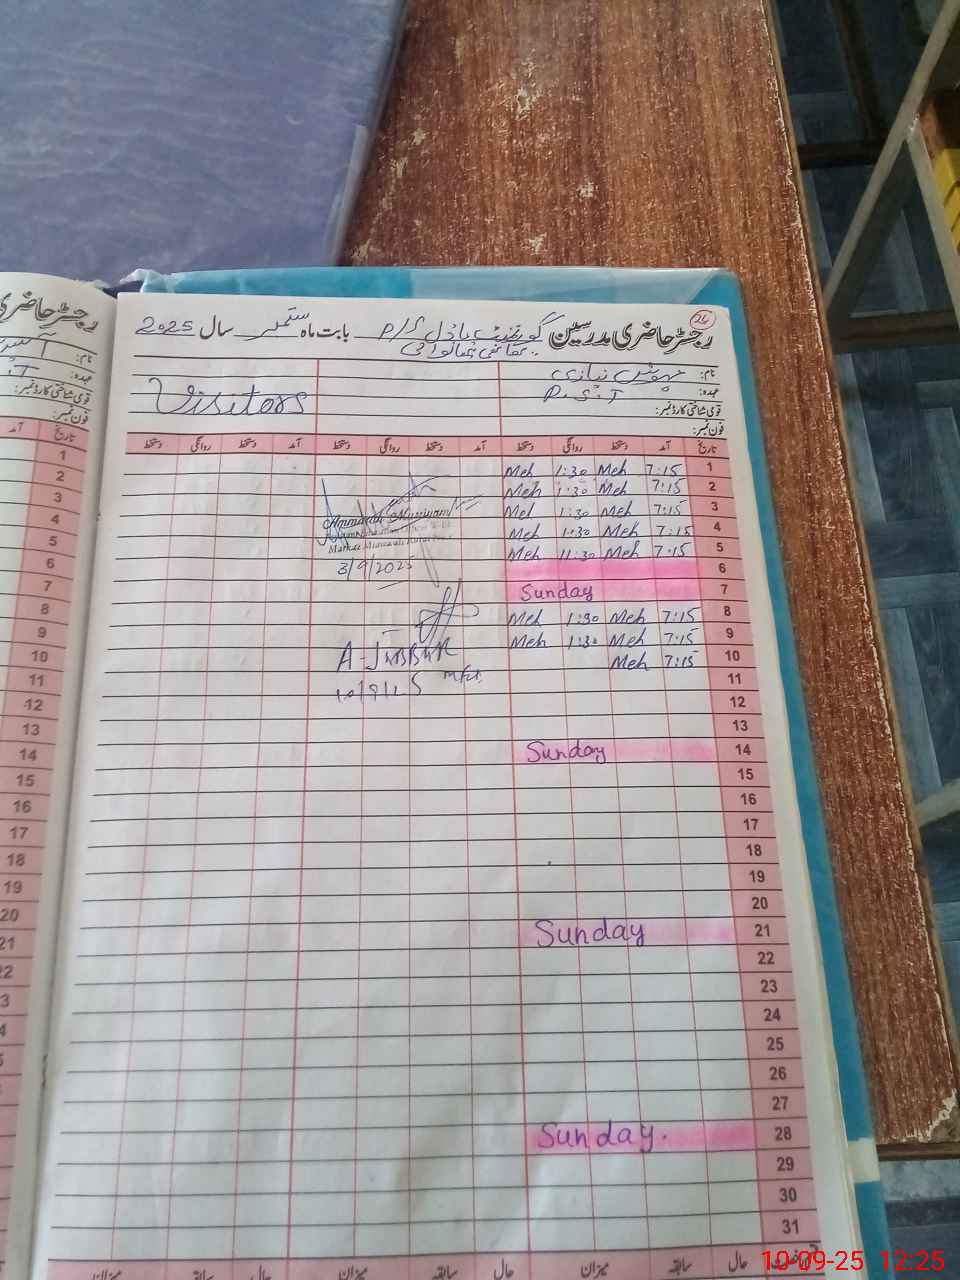 رجسٹر حاضری مدرسین گورنمنٹ ماڈل P/S بابت ماہ ستمبر سال 2025
26
نام:
عہدہ: P.S.T
قومی شناختی کارڈ نمبر:
فون نمبر:
Visitors
تاریخ آمد دستخط روانگی دستخط آمد دستخط روانگی دستخط آمد دستخط روانگی دستخط
1 7:15 Meh 1:30 Meh
2 7:15 Meh 1:30 Meh
3 7:15 Meh 1:30 Meh
4 7:15 Meh 1:30 Meh
5 7:15 Meh 11:30 Meh
3/9/2025
6
7 Sunday
8 7:15 Meh 1:30 Meh
9 7:15 Meh 1:30 Meh
10 7:15 Meh
A-JABBAR
10/9/25
11
12
13
14 Sunday
15
16
17
18
19
20
21 Sunday
22
23
24
25
26
27
28 Sunday.
29
30
31
حال سابقہ میزان حال سابقہ میزان حال سابقہ میزان
رجسٹر حاضری
نام:
عہدہ:
قومی شناختی کارڈ نمبر:
فون نمبر:
تاریخ آمد
1
2
3
4
5
6
7
8
9
10
11
12
13
14
15
16
17
18
19
20
21
10-09-25 12:25